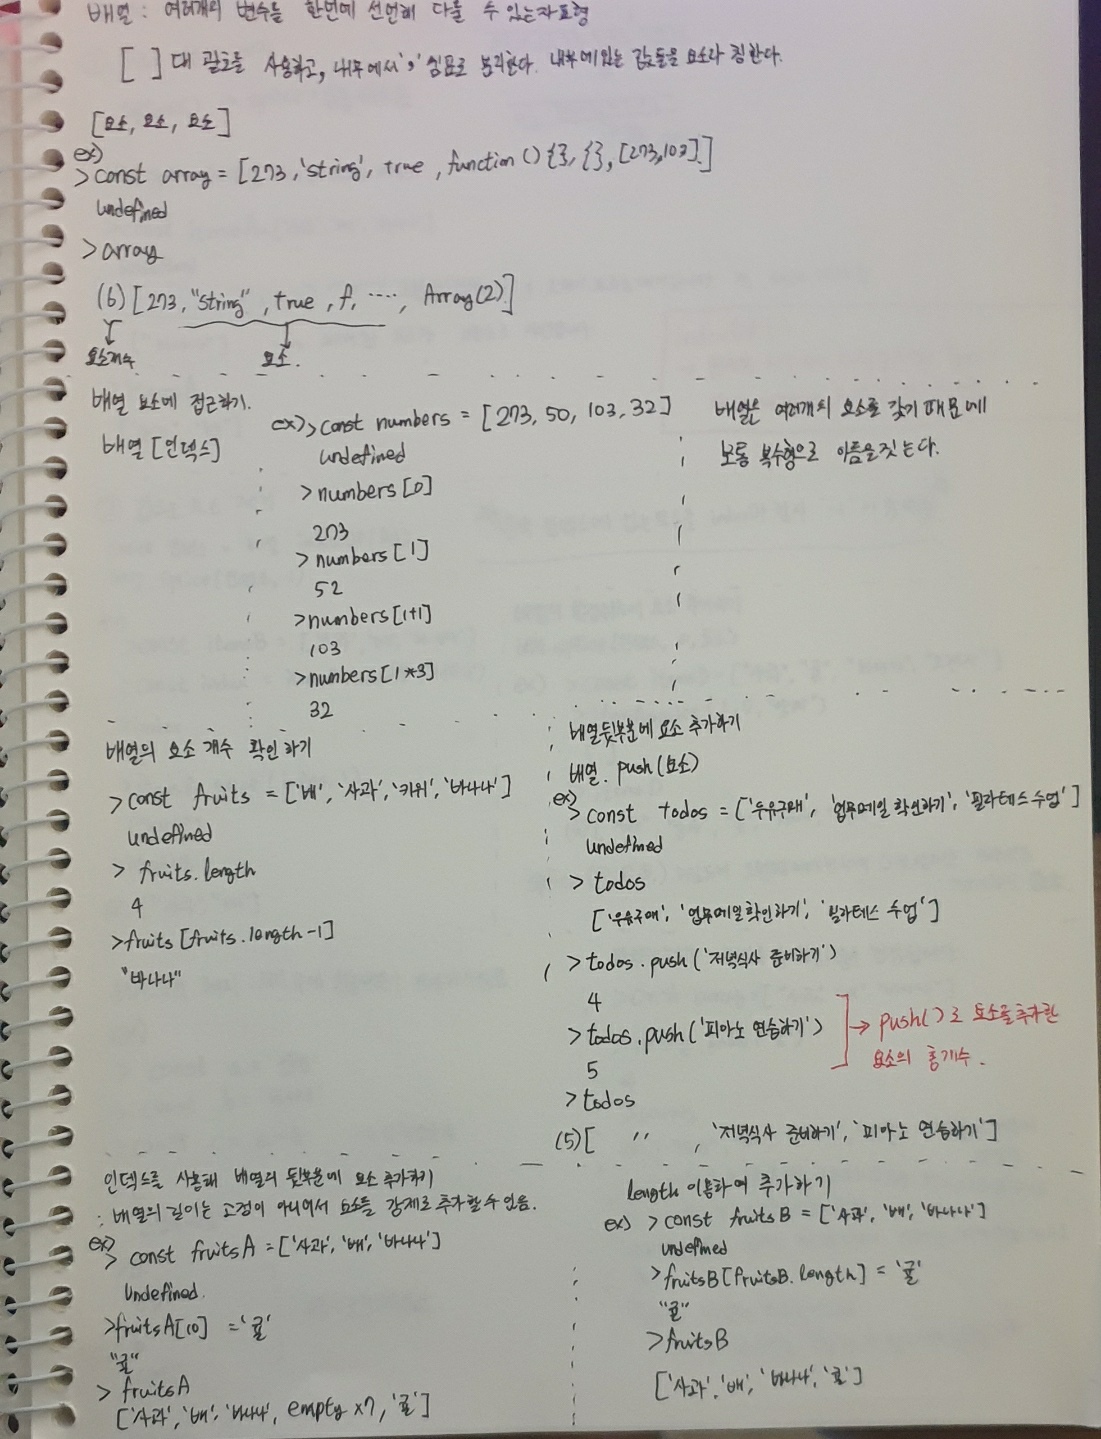 배열 : 여러개의 변수를 한번에 선언해 다룰 수 있는자료형
[ ] 대 괄호를 사용하고, 내부에서 ',' 쉼표로 분리한다. 내부에있는 값들을 요소라 칭한다.
[요소, 요소, 요소]
ex)
> const array = [273, 'string', true, function () {}, {}, [273,103]]
undefined
> array
(6) [273, "string", true, f, ····, Array(2)]
요소개수 요소.
배열 요소에 접근하기.
배열 [인덱스]
ex) > const numbers = [273, 50, 103, 32]
undefined
> numbers [0]
273
> numbers [1]
52
> numbers [1+1]
103
> numbers [1*3]
32
배열은 여러개의 요소를 갖기 때문에
보통 복수형으로 이름을짓는다.
배열의 요소 개수 확인하기
> const fruits = ['배', '사과', '키위', '바나나']
undefined
> fruits.length
4
> fruits [fruits.length-1]
"바나나"
배열뒷부분에 요소 추가하기
배열. push (요소)
ex)
> const todos = ['우유구매', '업무메일 확인하기', '필라테스 수업']
undefined
> todos
['우유구매', '업무메일확인하기', '필라테스 수업']
> todos.push ('저녁식사 준비하기')
4
> todos.push ('피아노 연습하기')
5
→ push( )로 요소를추가한
요소의 총개수.
> todos
(5) [ 〃 , '저녁식사 준비하기', '피아노 연습하기']
인덱스를 사용해 배열의 뒷부분에 요소 추가하기
: 배열의 길이는 고정이 아니어서 요소를 강제로 추가할수 있음.
ex)
> const fruitsA = ['사과', '배', '바나나']
undefined.
> fruitsA[10] = '귤'
"귤"
> fruitsA
['사과', '배', '바나나, empty x7, '귤']
length 이용하여 추가하기
ex) > const fruitsB = ['사과', '배', '바나나']
undefined
> fruitsB [fruitsB.length] = '귤'
"귤"
> fruitsB
['사과', '배', '바나나', '귤']